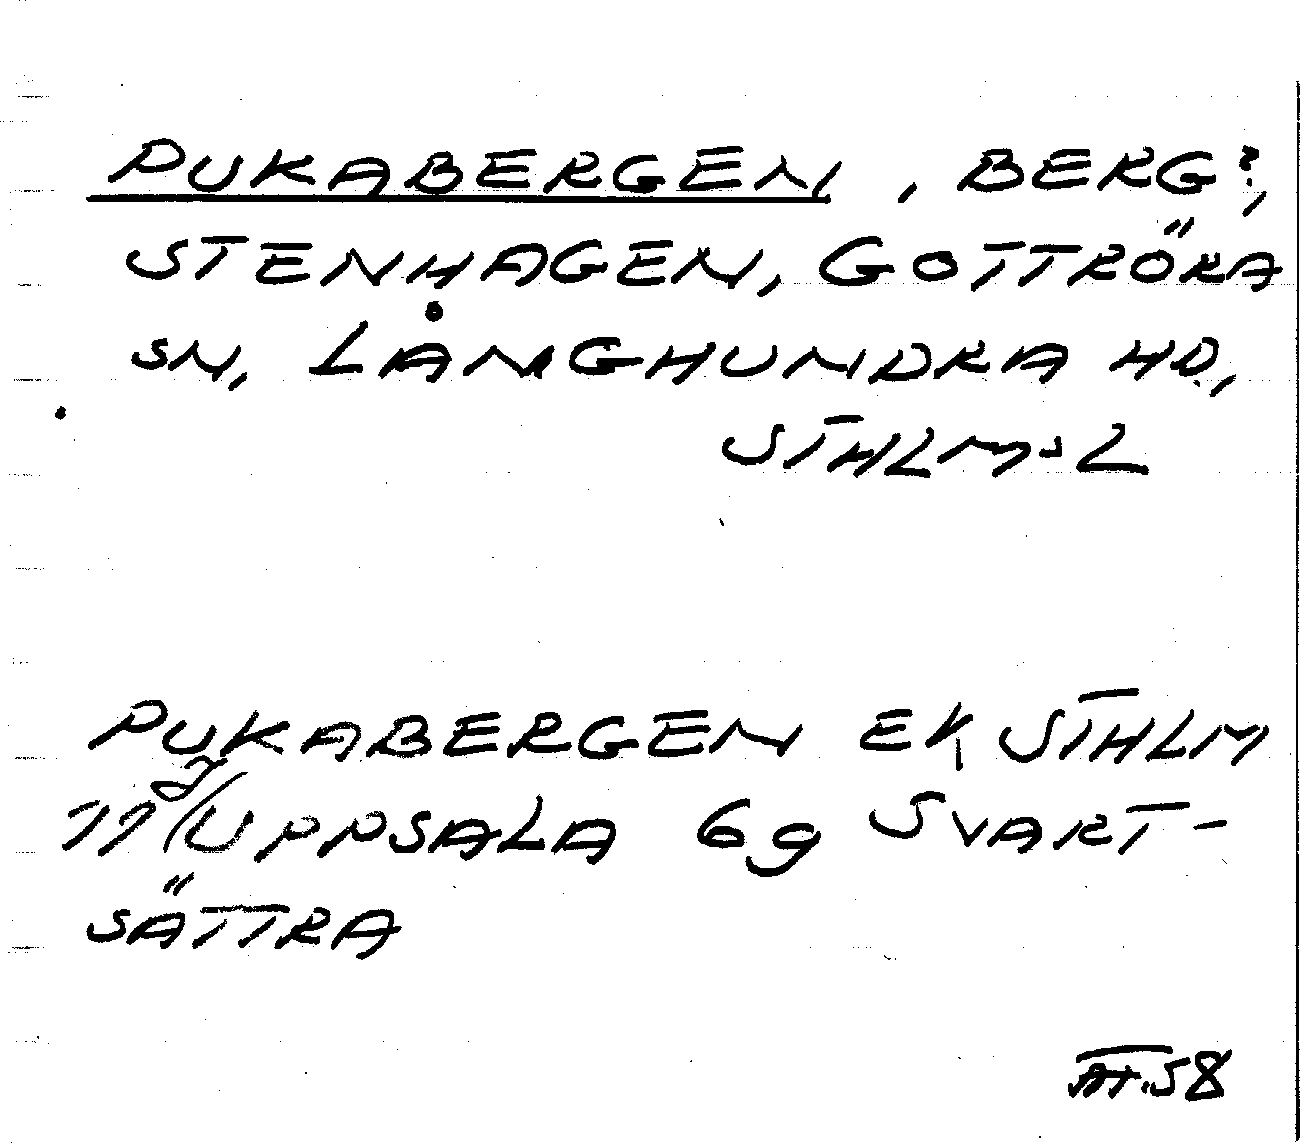 PUKABERGEN, BERG?,
STENHAGEN, GOTTRÖRA
SN, LÅNGHUNDRA HD,
STHLMS L
PUKABERGEN EK STHLM
UPPSALA 69 SVART-
SÄTTRA
58